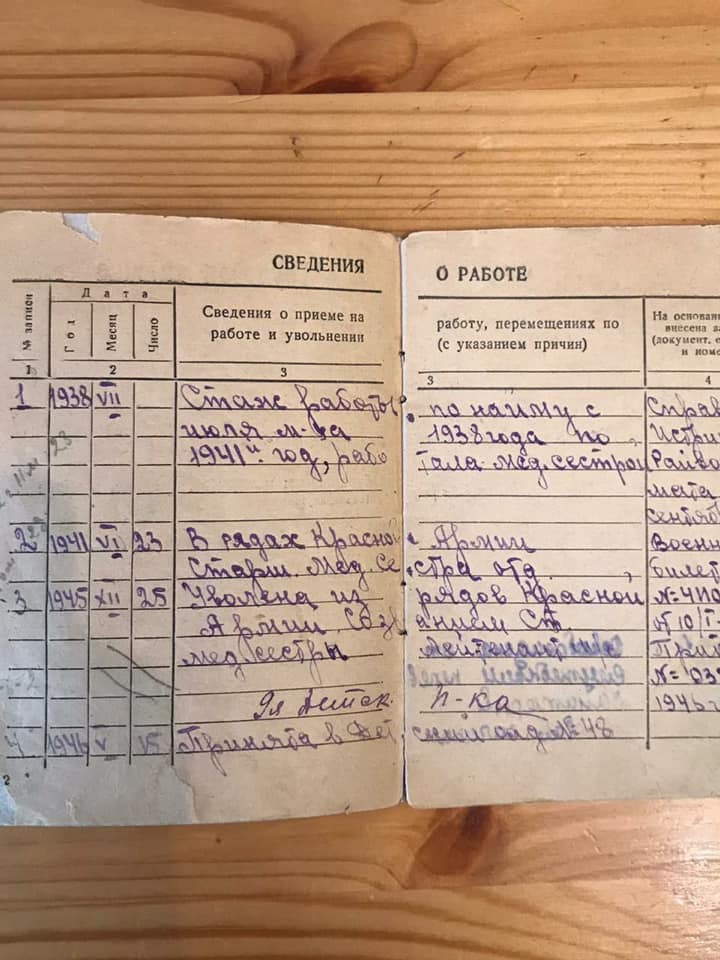 СВЕДЕНИЯ О РАБОТЕ
№ записи
Дата
Год
Месяц
Число
Сведения о приеме на
работе и увольнении
работу, перемещениях по
(с указанием причин)
На основан
внесена за
(документ, е
и номе
1 2 3 3 4
1 1938 VII Стаж работы по найму с Справ
июля м-ца 1938 года по Истри
1941 г. год, рабо тала мед. сестрой Райво
мата
сентяб
2 1941 VI 23 В рядах Красной Армии Воен
Старш. мед. се стра отд. билет
3 1945 XII 25 Уволена из рядов Красной № 4110
Армии. Со зв анием Ст. от 10/I
мед. сестры Лейтенант При
№ 03
п-ка 1946 г
4 1946 V 15 Принята в Дет ский сад № 48
2